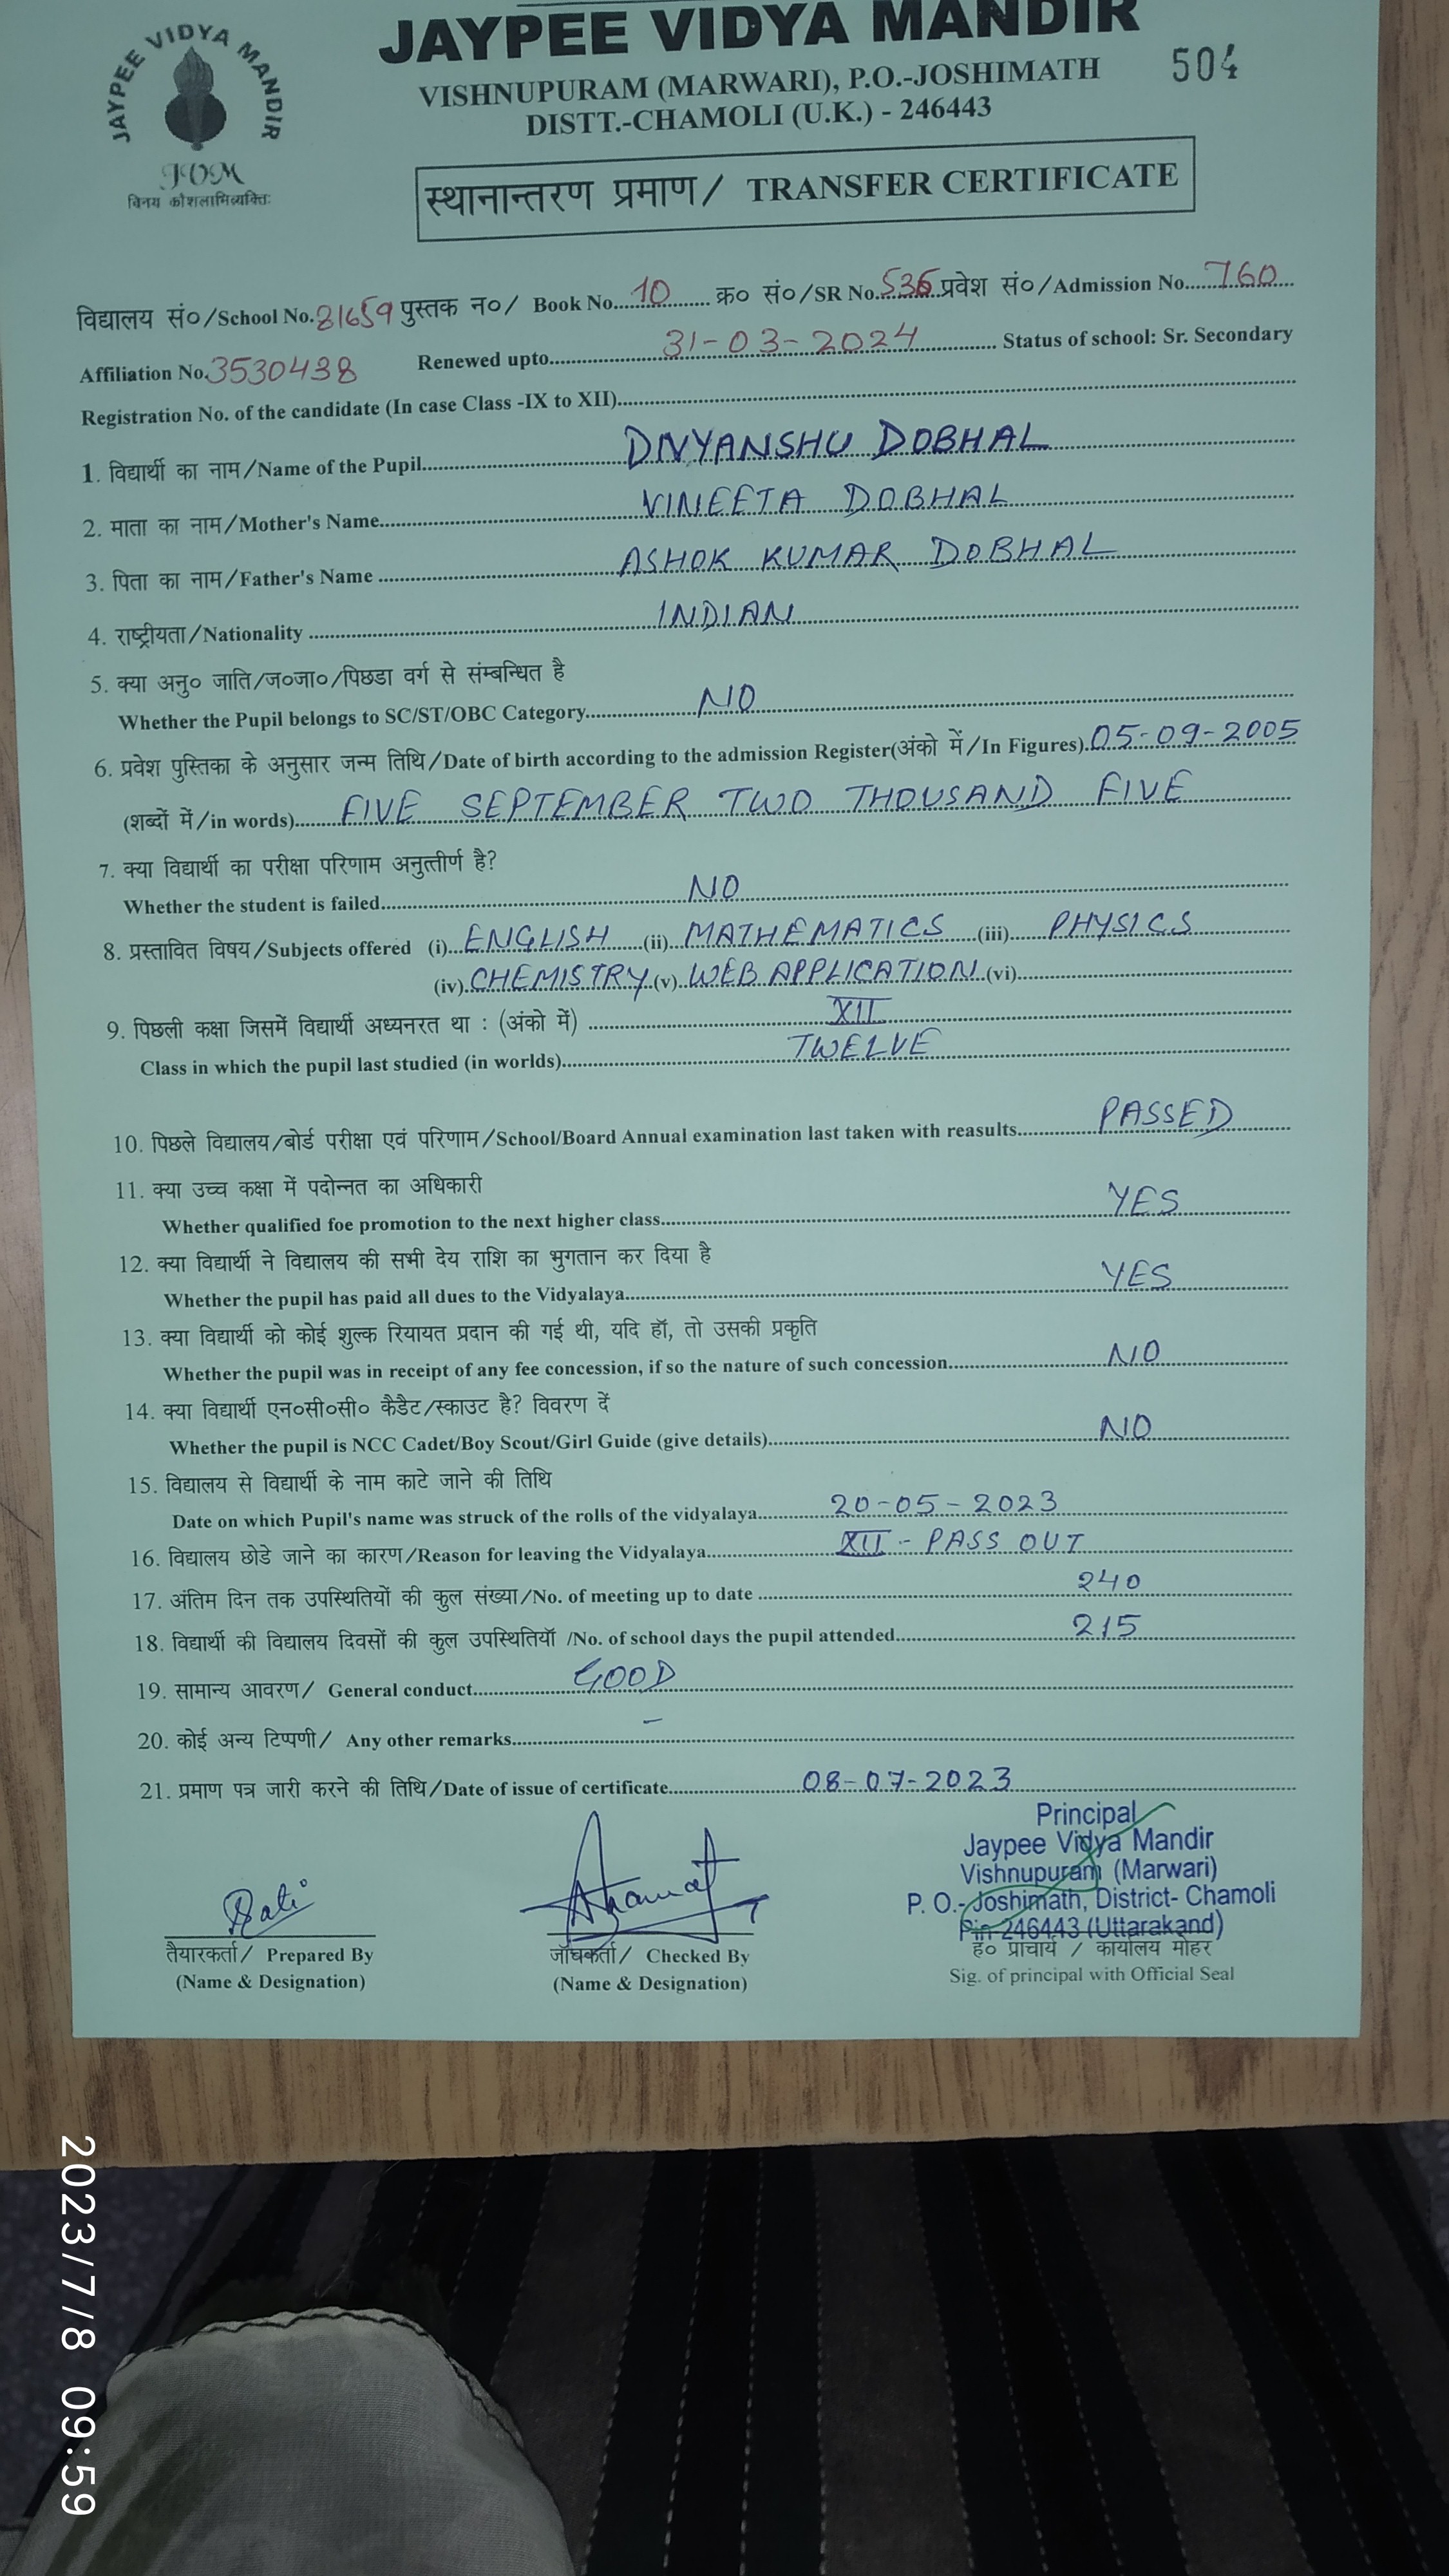 JAYPEE VIDYA MANDIR
JAYPEE VIDYA MANDIR
504
VISHNUPURAM (MARWARI), P.O.-JOSHIMATH
DISTT.-CHAMOLI (U.K.) - 246443
JVM
विनय कौशलाभिव्यक्तिः
स्थानान्तरण प्रमाण/ TRANSFER CERTIFICATE
विद्यालय सं०/School No. 81659 पुस्तक न०/ Book No. 10 क्र० सं०/SR No. 536 प्रवेश सं०/Admission No. 760
Affiliation No. 3530438 Renewed upto 31-03-2024 Status of school: Sr. Secondary
Registration No. of the candidate (In case Class -IX to XII)
1. विद्यार्थी का नाम/Name of the Pupil DIVYANSHU DOBHAL
2. माता का नाम/Mother's Name VINEETA DOBHAL
3. पिता का नाम/Father's Name ASHOK KUMAR DOBHAL
4. राष्ट्रीयता/Nationality INDIAN
5. क्या अनु० जाति/ज०जा०/पिछडा वर्ग से संम्बन्धित है
Whether the Pupil belongs to SC/ST/OBC Category NO
6. प्रवेश पुस्तिका के अनुसार जन्म तिथि/Date of birth according to the admission Register(अंको में/In Figures) 05-09-2005
(शब्दों में/in words) FIVE SEPTEMBER TWO THOUSAND FIVE
7. क्या विद्यार्थी का परीक्षा परिणाम अनुत्तीर्ण है?
Whether the student is failed NO
8. प्रस्तावित विषय/Subjects offered (i) ENGLISH (ii) MATHEMATICS (iii) PHYSICS
(iv) CHEMISTRY (v) WEB APPLICATION (vi)
9. पिछली कक्षा जिसमें विद्यार्थी अध्यनरत था : (अंको में) XII
Class in which the pupil last studied (in worlds) TWELVE
10. पिछले विद्यालय/बोर्ड परीक्षा एवं परिणाम/School/Board Annual examination last taken with reasults PASSED
11. क्या उच्च कक्षा में पदोन्नत का अधिकारी
Whether qualified foe promotion to the next higher class YES
12. क्या विद्यार्थी ने विद्यालय की सभी देय राशि का भुगतान कर दिया है
Whether the pupil has paid all dues to the Vidyalaya YES
13. क्या विद्यार्थी को कोई शुल्क रियायत प्रदान की गई थी, यदि हॉ, तो उसकी प्रकृति
Whether the pupil was in receipt of any fee concession, if so the nature of such concession NO
14. क्या विद्यार्थी एन०सी०सी० कैडैट/स्काउट है? विवरण दें
Whether the pupil is NCC Cadet/Boy Scout/Girl Guide (give details) NO
15. विद्यालय से विद्यार्थी के नाम काटे जाने की तिथि
Date on which Pupil's name was struck of the rolls of the vidyalaya 20-05-2023
16. विद्यालय छोडे जाने का कारण/Reason for leaving the Vidyalaya XII - PASS OUT
17. अंतिम दिन तक उपस्थितियों की कुल संख्या/No. of meeting up to date 240
18. विद्यार्थी की विद्यालय दिवसों की कुल उपस्थितियॉ /No. of school days the pupil attended 215
19. सामान्य आवरण/ General conduct GOOD
20. कोई अन्य टिप्पणी/ Any other remarks -
21. प्रमाण पत्र जारी करने की तिथि/Date of issue of certificate 08-07-2023
Principal
Jaypee Vidya Mandir
Vishnupuram (Marwari)
P. O.- Joshimath, District- Chamoli
Pin-246443 (Uttarakand)
तैयारकर्ता/ Prepared By
(Name & Designation)
जॉचकर्ता/ Checked By
(Name & Designation)
ह० प्राचार्य / कार्यालय मोहर
Sig. of principal with Official Seal
2023/7/8 09:59